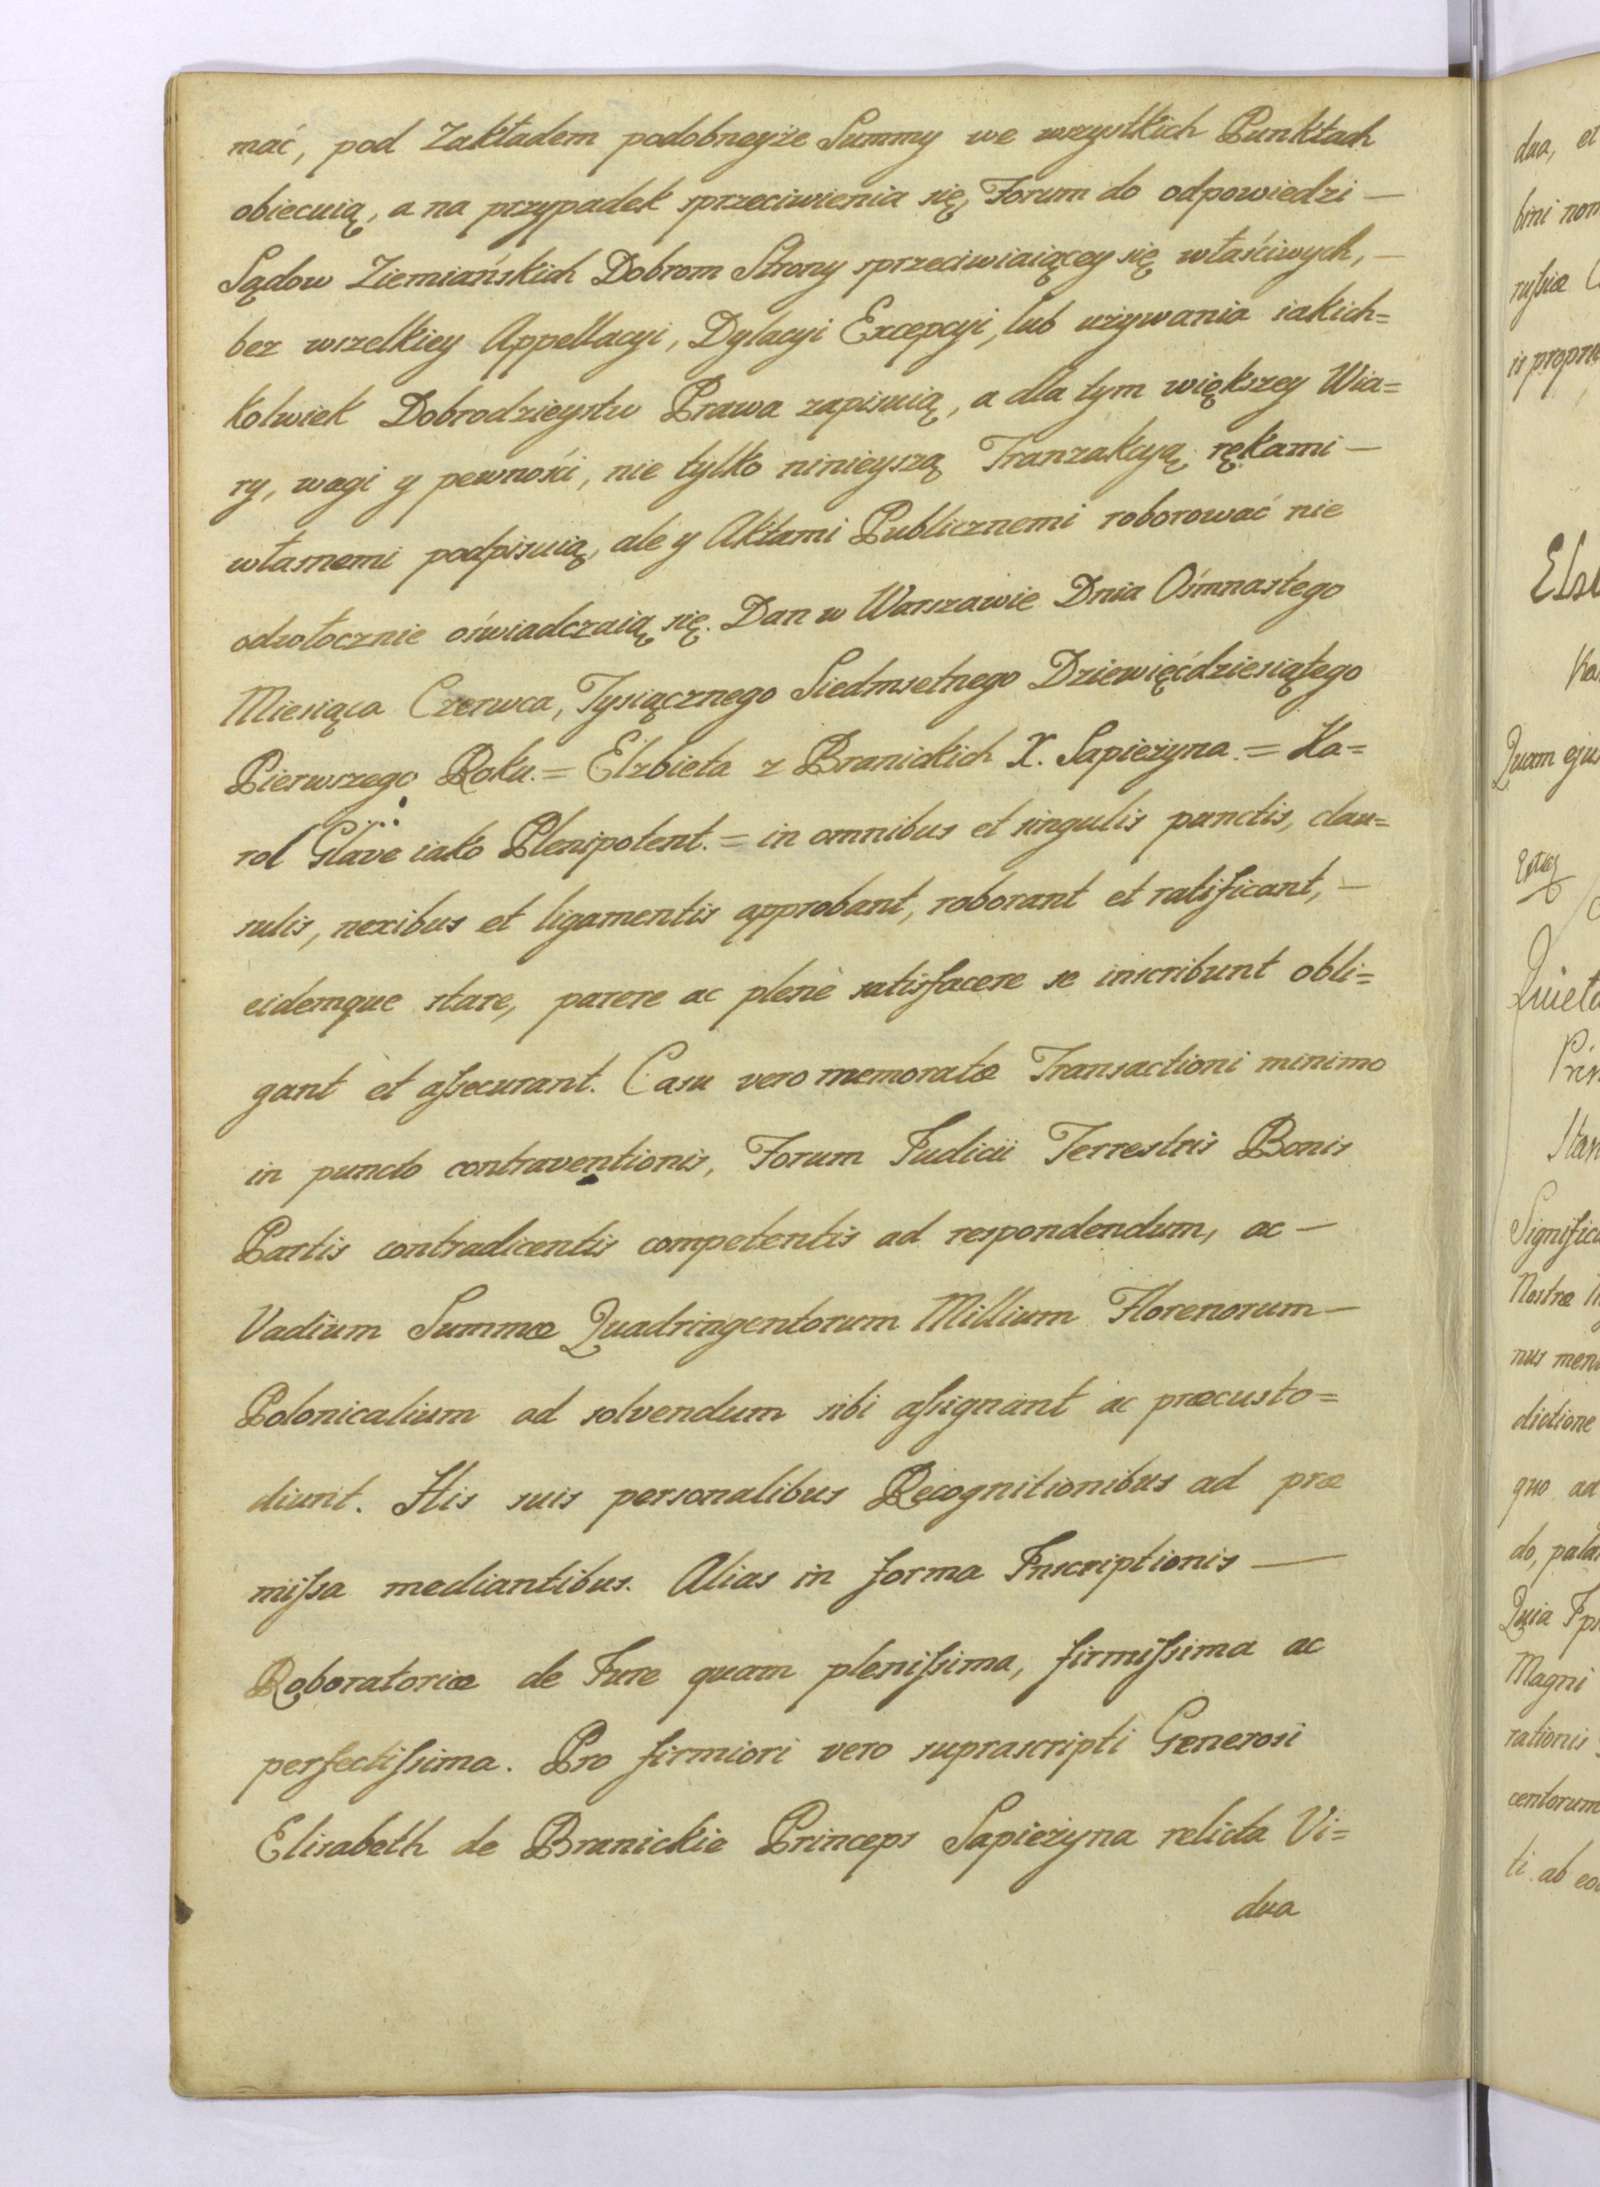 mać, pod Zakładem podobneyże Summy we wszystkich Punktach
obiecuią, a na przypadek sprzeciwienia się, Forum do odpowiedzi —
Sądow Ziemiańskich Dobrom Strony sprzeciwiaiącey się właściwych, —
bez wszelkiey Appellacyi, Dylacyi Excepcyi, lub używania iakich=
kolwiek Dobrodzieystw Prawa zapisuią, a dla tym większey Wia=
ry, wagi y pewności, nie tylko ninieyszą Tranzakcyą rękami —
własnemi podpisuią, ale y Aktami Publicznemi roborować nie
odwłocznie oświadczaią się. Dan w Warszawie Dnia Ośmnastego
Miesiąca Czerwca, Tysiącznego Siedmsetnego Dziewięćdziesiątego
Pierwszego Roku. = Elzbieta z Branickich X. Sapieżyna. = Ka=
rol Glave iako Plenipotent. = in omnibus et singulis punctis, clau=
sulis, nexibus et ligamentis approbant, roborant et ratificant, —
eidemque stare, parere ac plenè satisfacere se inscribunt obli=
gant et aſsecurant. Casu vero memoratæ Transactioni minimo
in puncto contraventionis, Forum Judicii Terrestris Bonis
Partis contradicentis competentis ad respondendum, ac —
Vadium Summæ Quadringentorum Millium Florenorum —
Polonicalium ad solvendum sibi aſsignant ac præcusto=
diunt. His suis personalibus Recognitionibus ad præ
miſsa mediantibus. Alias in forma Inscriptionis —
Roboratoriæ de Jure quam pleniſsima, firmiſsima ac
perfectiſsima. Pro firmiori vero suprascripti Generosi
Elisabeth de Branickie Princeps Sapieżyna relicta Vi=
dua
dua, et
bini nom
is propri
Quam ejus
Nostræ
dictione
quo ad
Magni
rationis
centorum